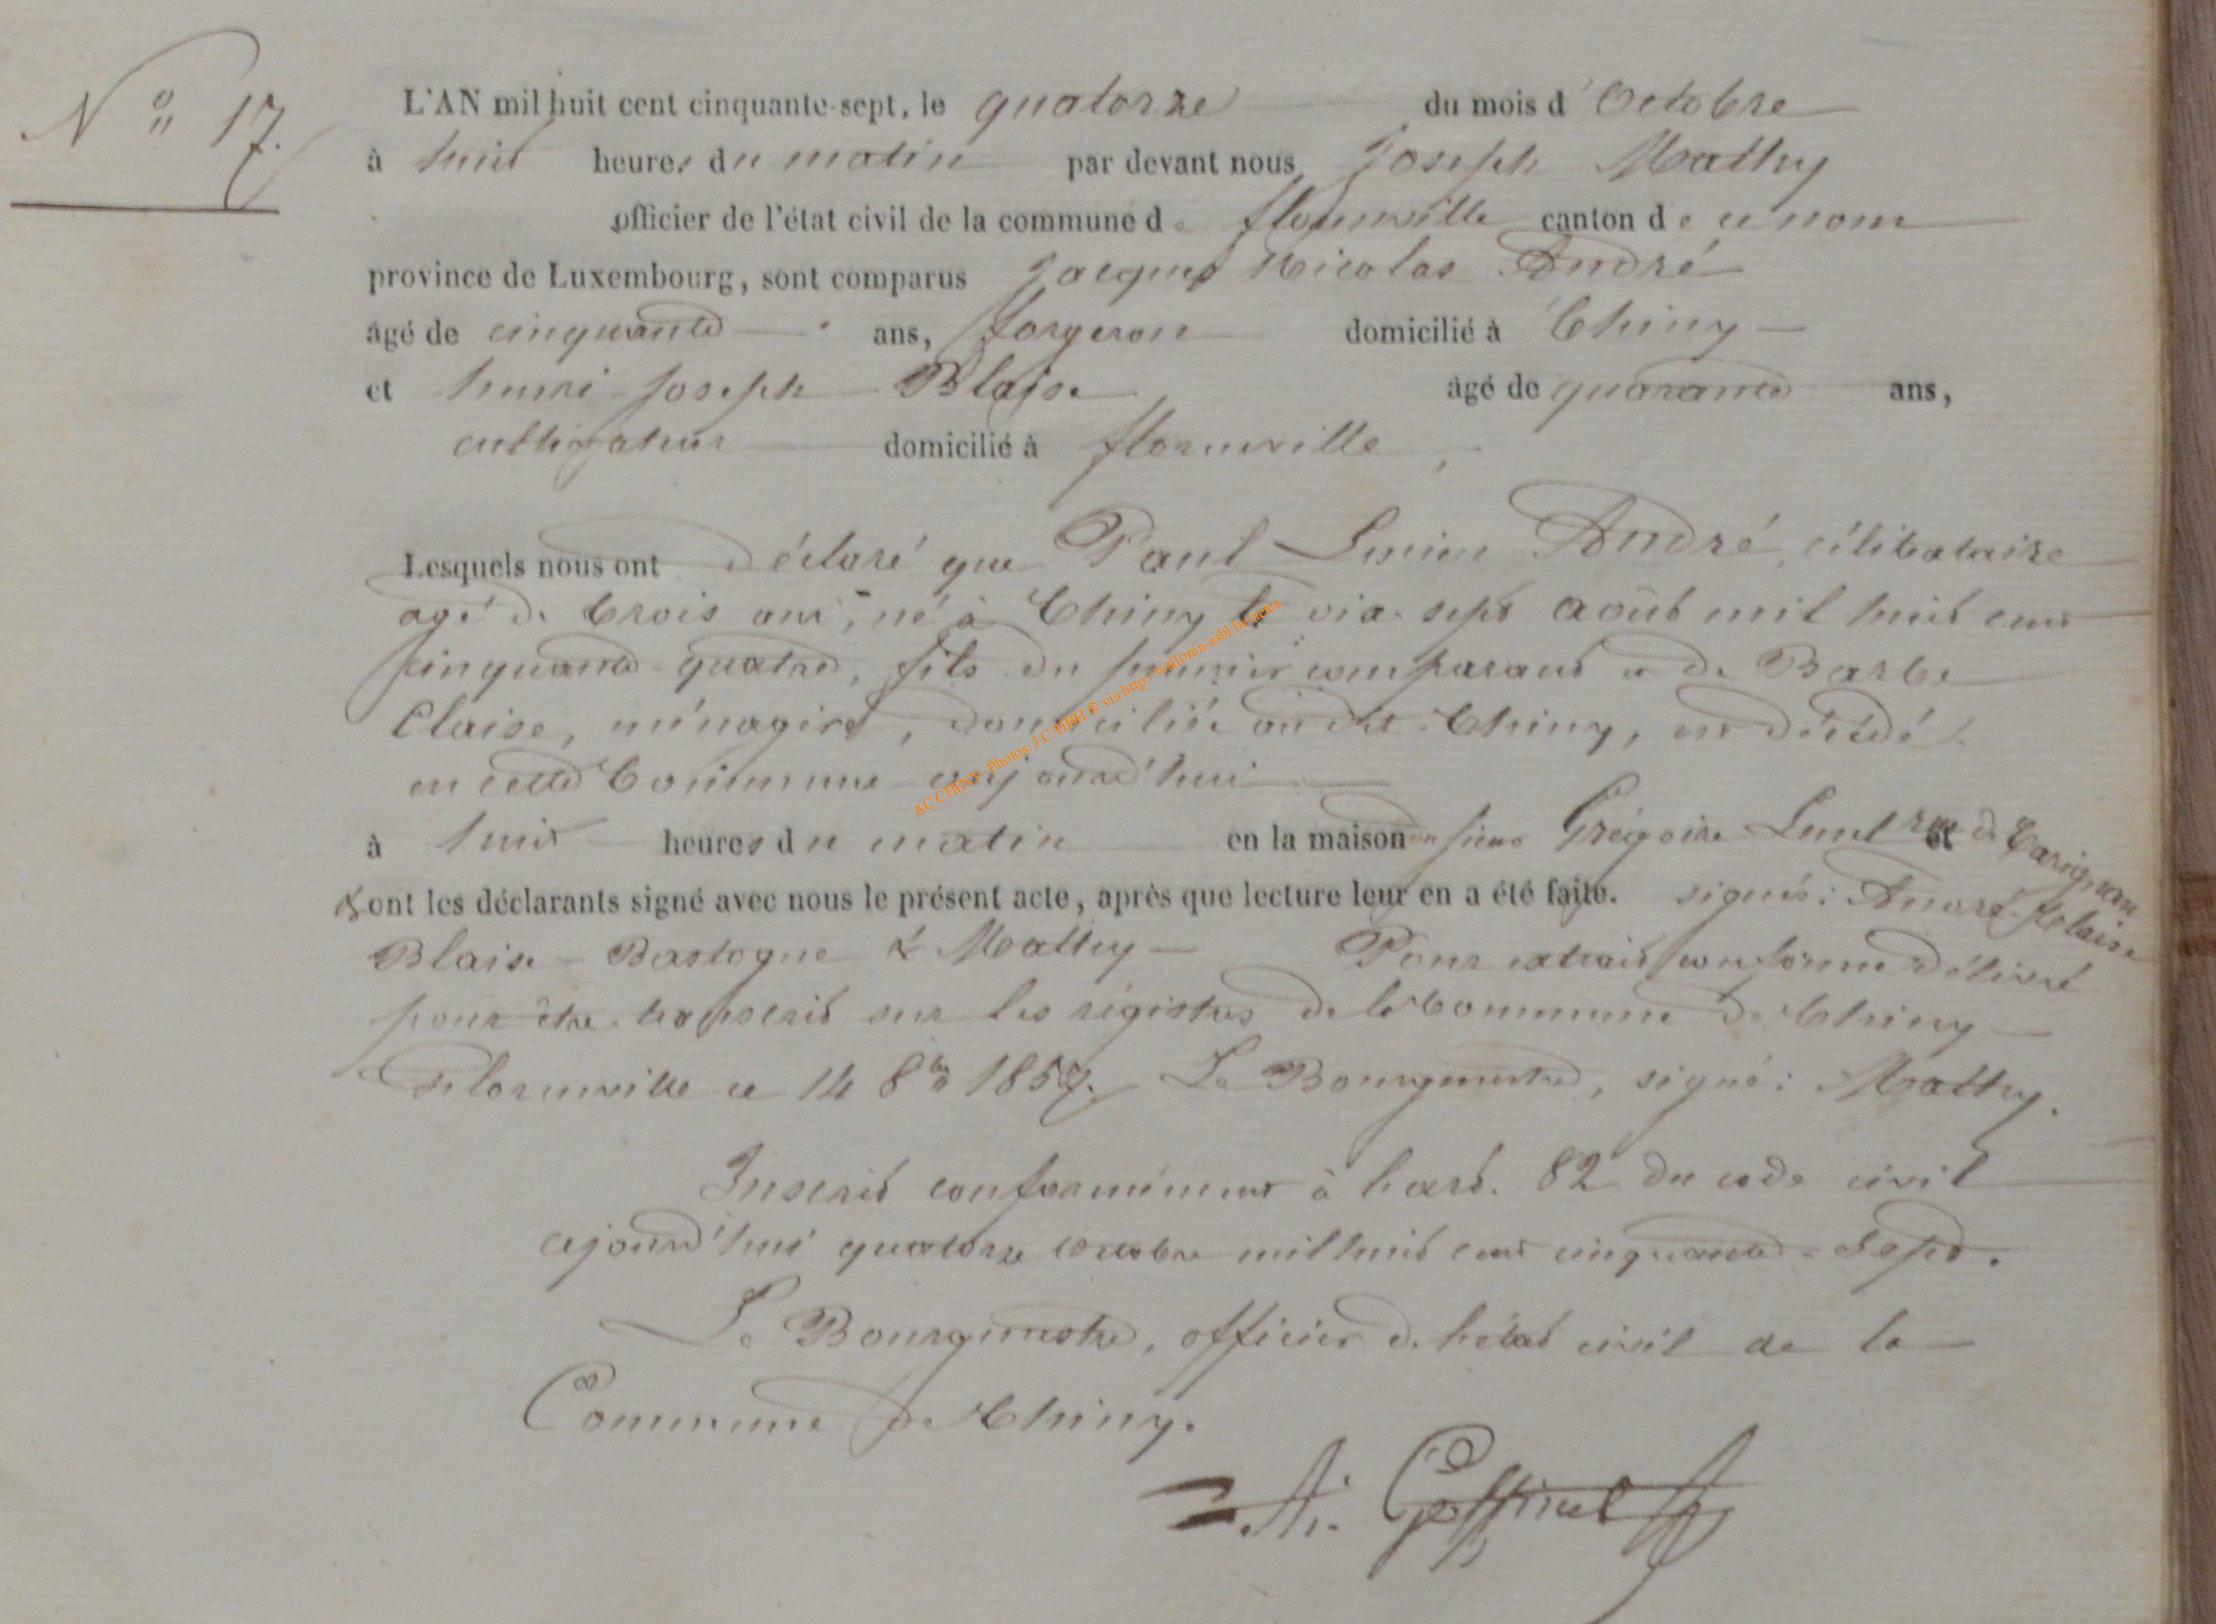 N° 17.
L'AN mil huit cent cinquante-sept, le quatorze du mois d'Octobre
à huit heures du matin par devant nous Joseph Mathy
officier de l'état civil de la commune de florenville canton de ce nom
province de Luxembourg, sont comparus Jacques Nicolas André
âgé de cinquante ans, forgeron domicilié à Chiny
et henri-joseph Blaise âgé de quarante ans,
cultivateur domicilié à florenville,
Lesquels nous ont déclaré que Paul Lucien André, célibataire
agé de trois ans, né à Chiny le sept août mil huit cent
cinquante-quatre, fils du premier comparant et de Barbe
Claise, ménagère, domiciliée au dit Chiny, est décédé
en cette Commune aujourd'hui
à huit heures du matin en la maison du sieur Grégoire rue de Carignan et
& ont les déclarants signé avec nous le présent acte, après que lecture leur en a été faite. signés: André
Blaise - Bastogne & Mathy - Pour extrait conforme délivré
pour être transcrit sur les régistres de la Commune de Chiny
Florenville ce 14 8bre 1857. Le Bourgmestre, signé: Mathy.
Inscrit conformément à l'art. 82 du code civil
ajourd'hui quatorze octobre mil huit cent cinquante-Sept.
Le Bourgmestre, officier de l'état civil de la
Commune de Chiny.
ACCHINY- Photos J.C.HBH © via http://wallonia-asbl.be/actes